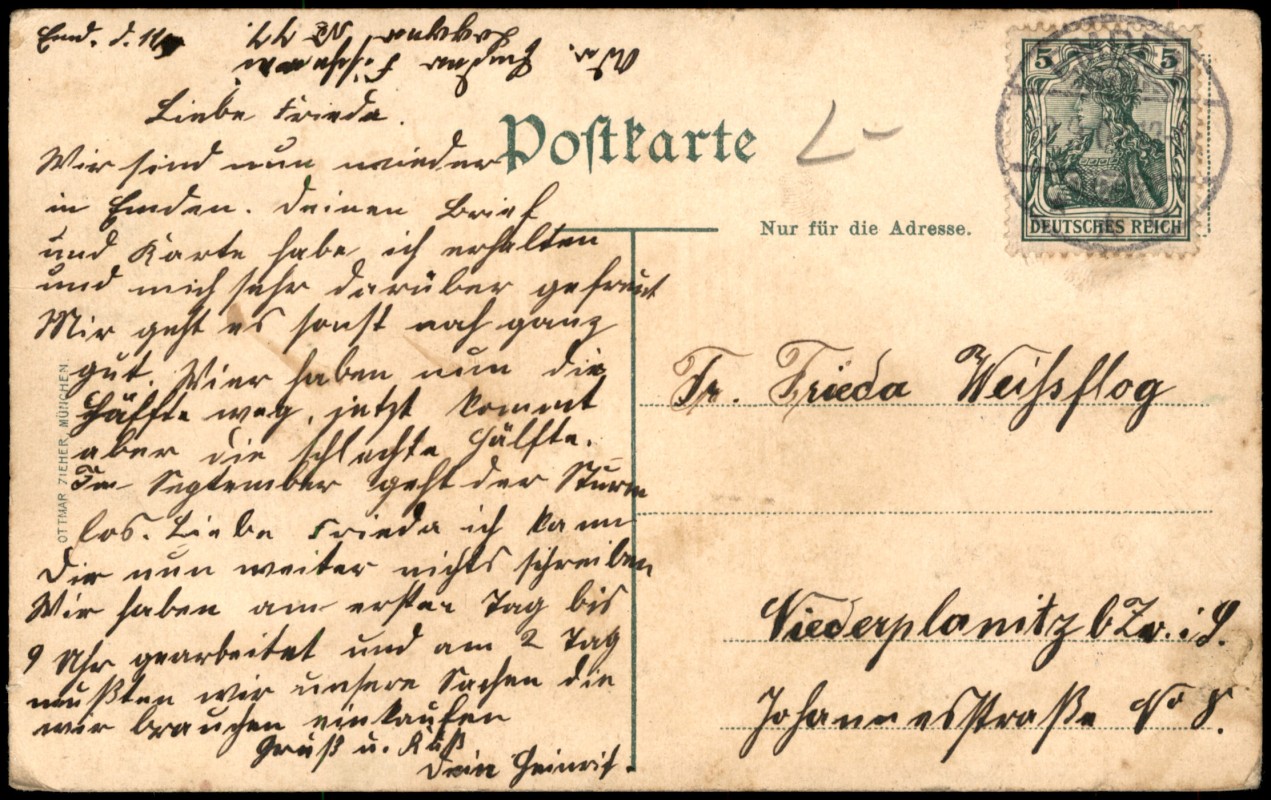 Emd. d.
Liebe Frieda.
Wir sind nun wieder
in Emden. Deinen Brief
und Karte habe ich erhalten
und mich sehr darüber gefreut
Mir geht es sonst noch ganz
gut. Wier haben nun die
Hälfte weg, jetzt kommt
aber die schlechte Hälfte.
Im September geht der Sturm
los. Liebe Frieda ich kann
Dir nun weiter nichts schreiben
Wir haben am ersten Tag bis
9 Uhr gearbeitet und am 2 Tag
mußten wir unsere Sachen die
wir brauchen einkaufen
Gruß u. Kuß
Dein Heinrich.
Postkarte
Nur für die Adresse.
5 5
DEUTSCHES REICH
Fr. Frieda Weißflog
Niederplanitz b Zw. i S.
Johannesstraße No 8.
OTTMAR ZIEHER, MÜNCHEN.